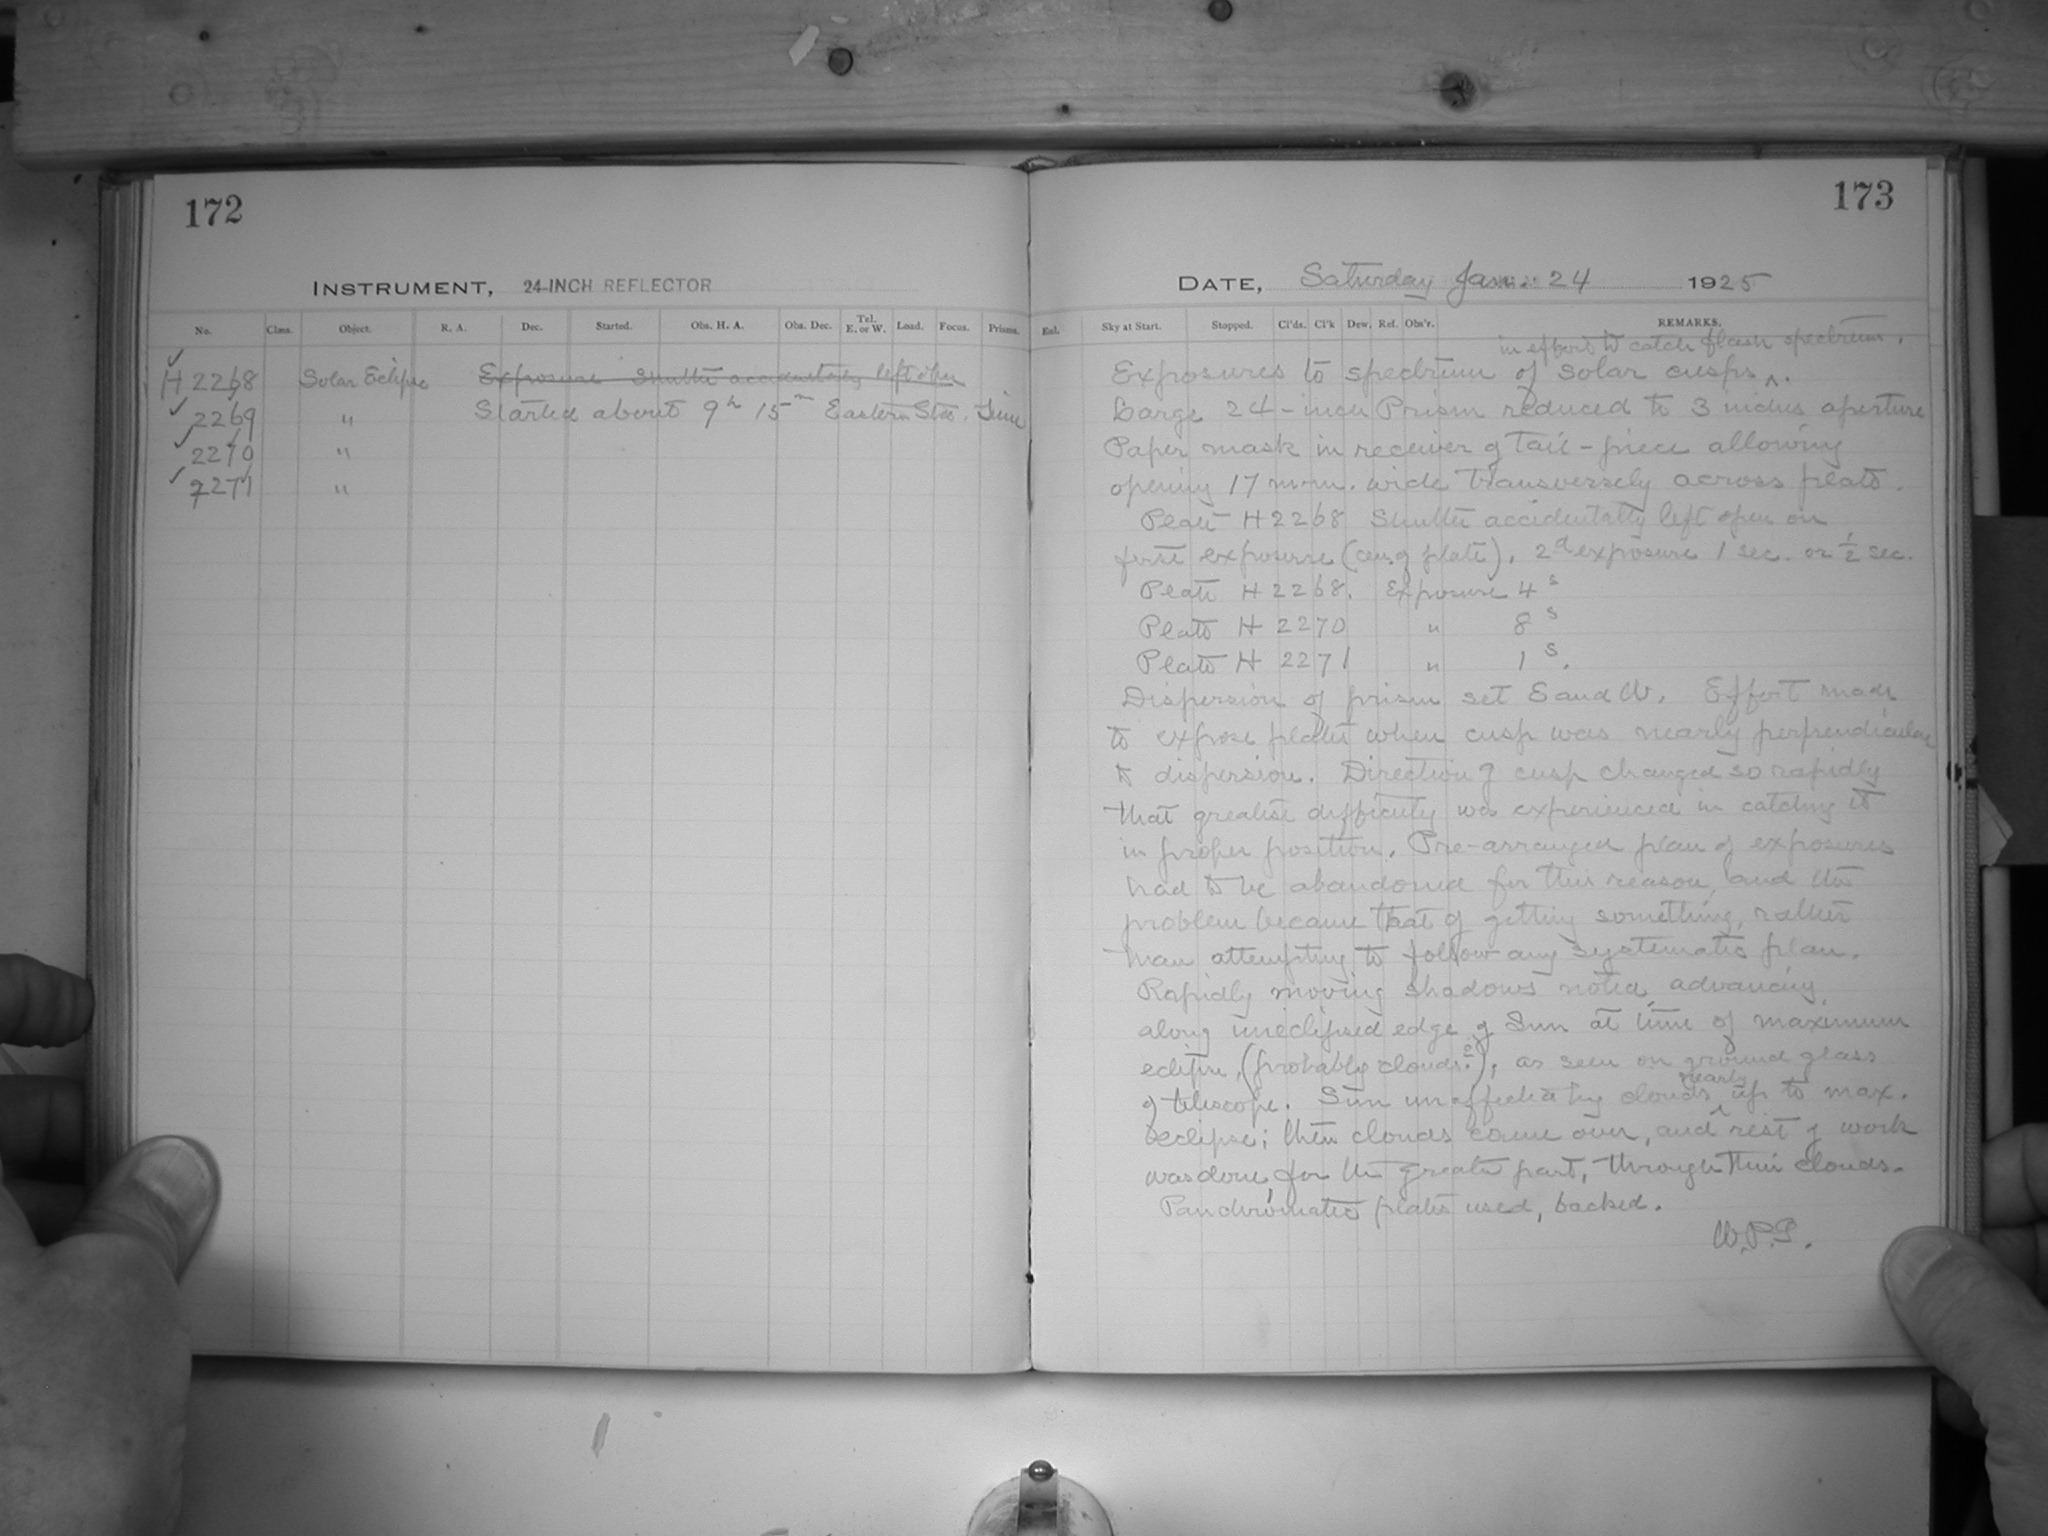 172
INSTRUMENT, 24-INCH REFLECTOR
No. Class. Object. R. A. Dec. Started. Obs. H. A. Obs. Dec. Tel. E. or W. Load. Focus. Prisms.
H 2268 Solar Eclipse Exposure Shutter accidentally left open
2269 " Started about 9h 15m Eastern Stan. Time
2270 "
2271 "
173
DATE, Saturday Jan. 24 1925
Ext. Sky at Start. Stopped. Cl'ds. Cl'k Dew. Ref. Obs'r. REMARKS.
in effort to catch flash spectrum.
Exposures to spectrum of solar cusps ^.
Large 24-inch Prism reduced to 3 inches aperture
Paper mask in receiver of tail-piece allowing
opening 17 m.m. wide transversely across plate.
Plate H 2268 Shutter accidentally left open on
first exposure (cen. of plate), 2d exposure 1 sec. or 1/2 sec.
Plate H 2268. Exposure 4s
Plate H 2270 " 8s
Plate H 2271 " 1s.
Dispersion of prism set E and W. Effort made
to expose plates when cusp was nearly perpendicular
to dispersion. Direction of cusp changed so rapidly
that greatest difficulty was experienced in catching it
in proper position. Pre-arranged plan of exposures
had to be abandoned for this reason, and the
problem became that of getting something, rather
than attempting to follow any systematic plan.
Rapidly moving shadows noted, advancing
along uneclipsed edge of Sun at time of maximum
eclipse, (probably clouds?), as seen on ground glass
of telescope. Sun unaffected by clouds ^ nearly up to max.
eclipse; then clouds came over, and rest of work
was done, for the greater part, through thin clouds.
Panchromatic plates used, backed.
W.P.G.